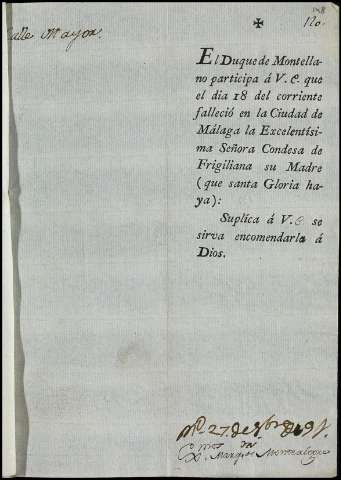 Calle Mayor.
✠
El Duque de Montella-
no participa á V. E. que
el dia 18 del corriente
falleció en la Ciudad de
Málaga la Excelentísi-
ma Señora Condesa de
Frigiliana su Madre
(que santa Gloria ha-
ya):
Suplíca á V. E se
sirva encomendarla á
Dios.
27. de
Marq. de